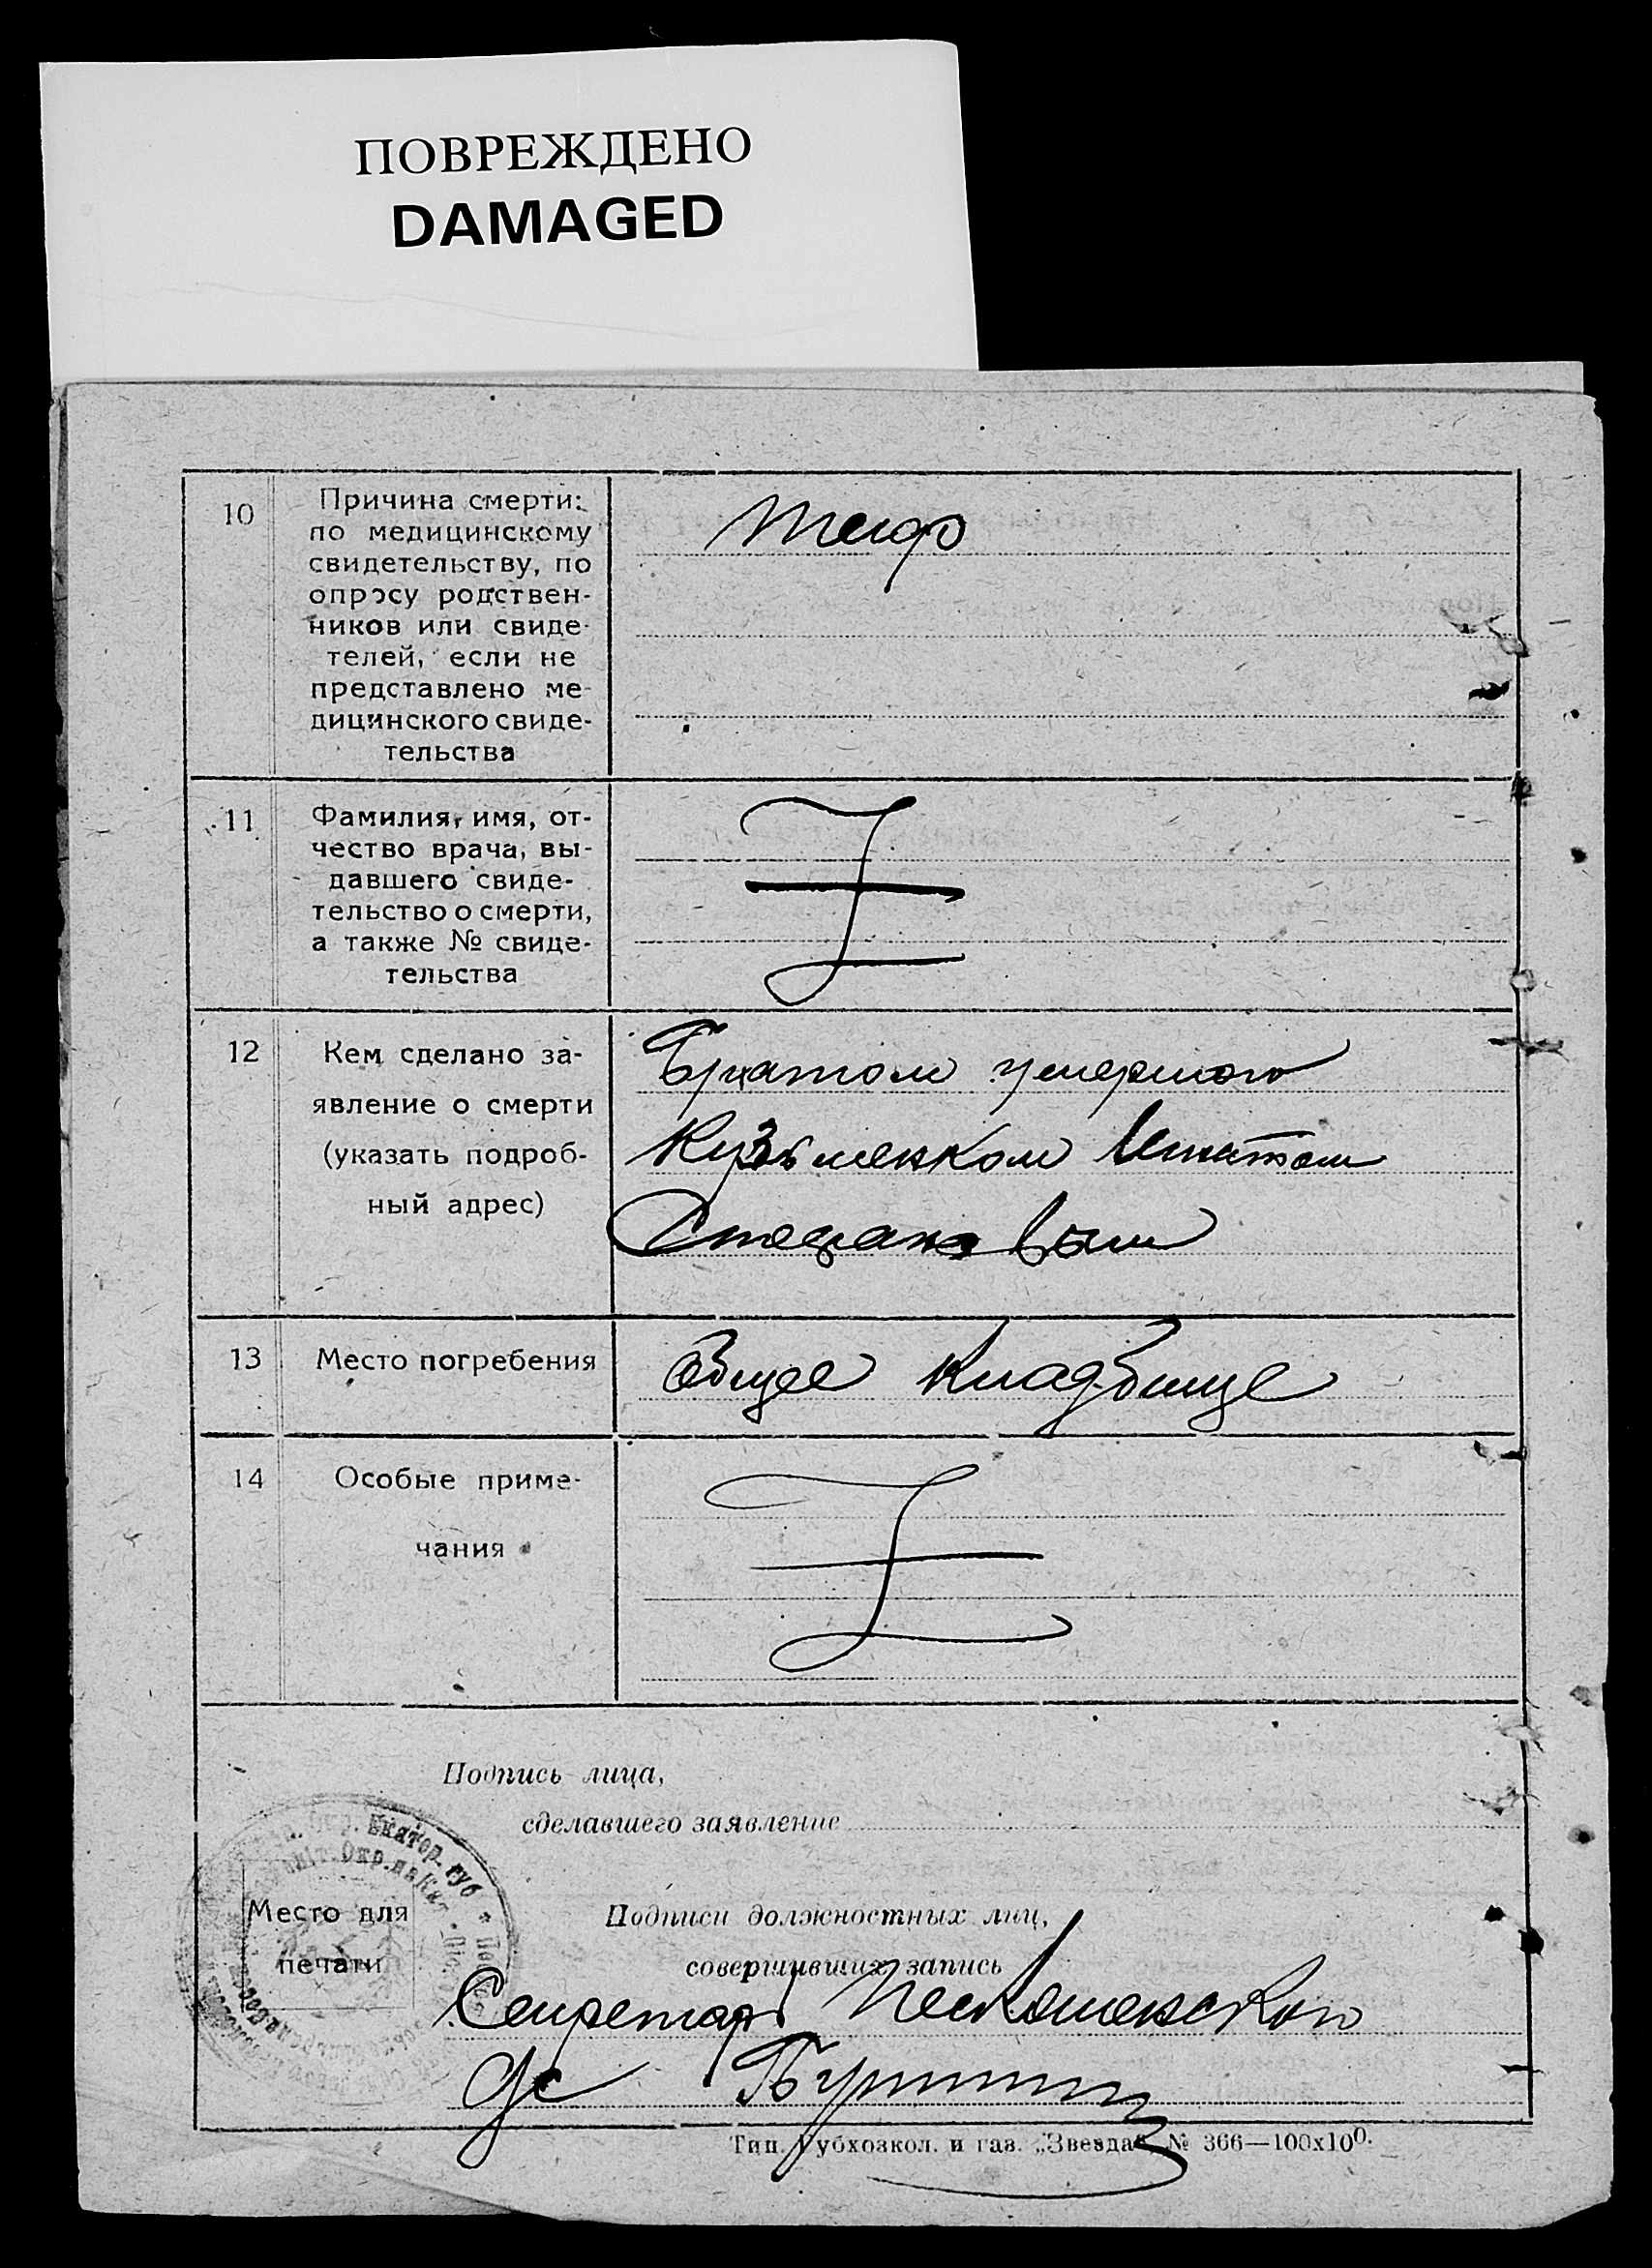 ПОВРЕЖДЕНО
DAMAGED
10
Причина смерти:
по медицинскому
свидетельству, по
опросу родствен-
ников или свиде-
телей, если не
представлено ме-
дицинского свиде-
тельства
Тиф
11
Фамилия, имя, от-
чество врача, вы-
давшего свиде-
тельство о смерти,
а также № свиде-
тельства
12
Кем сделано за-
явление о смерти
(указать подроб-
ный адрес)
Братом умершого
Кузьменком Игнатом
Стефановым
13
Место погребения
Общее кладбище
14
Особые приме-
чания
Подпись лица,
сделавшего заявление
Екатер. губ
Место для
печати
Подписи должностных лиц,
совершивших запись
Секретарь
Тип. Губхозкол. и газ. „Звезда" № 366—100х100.